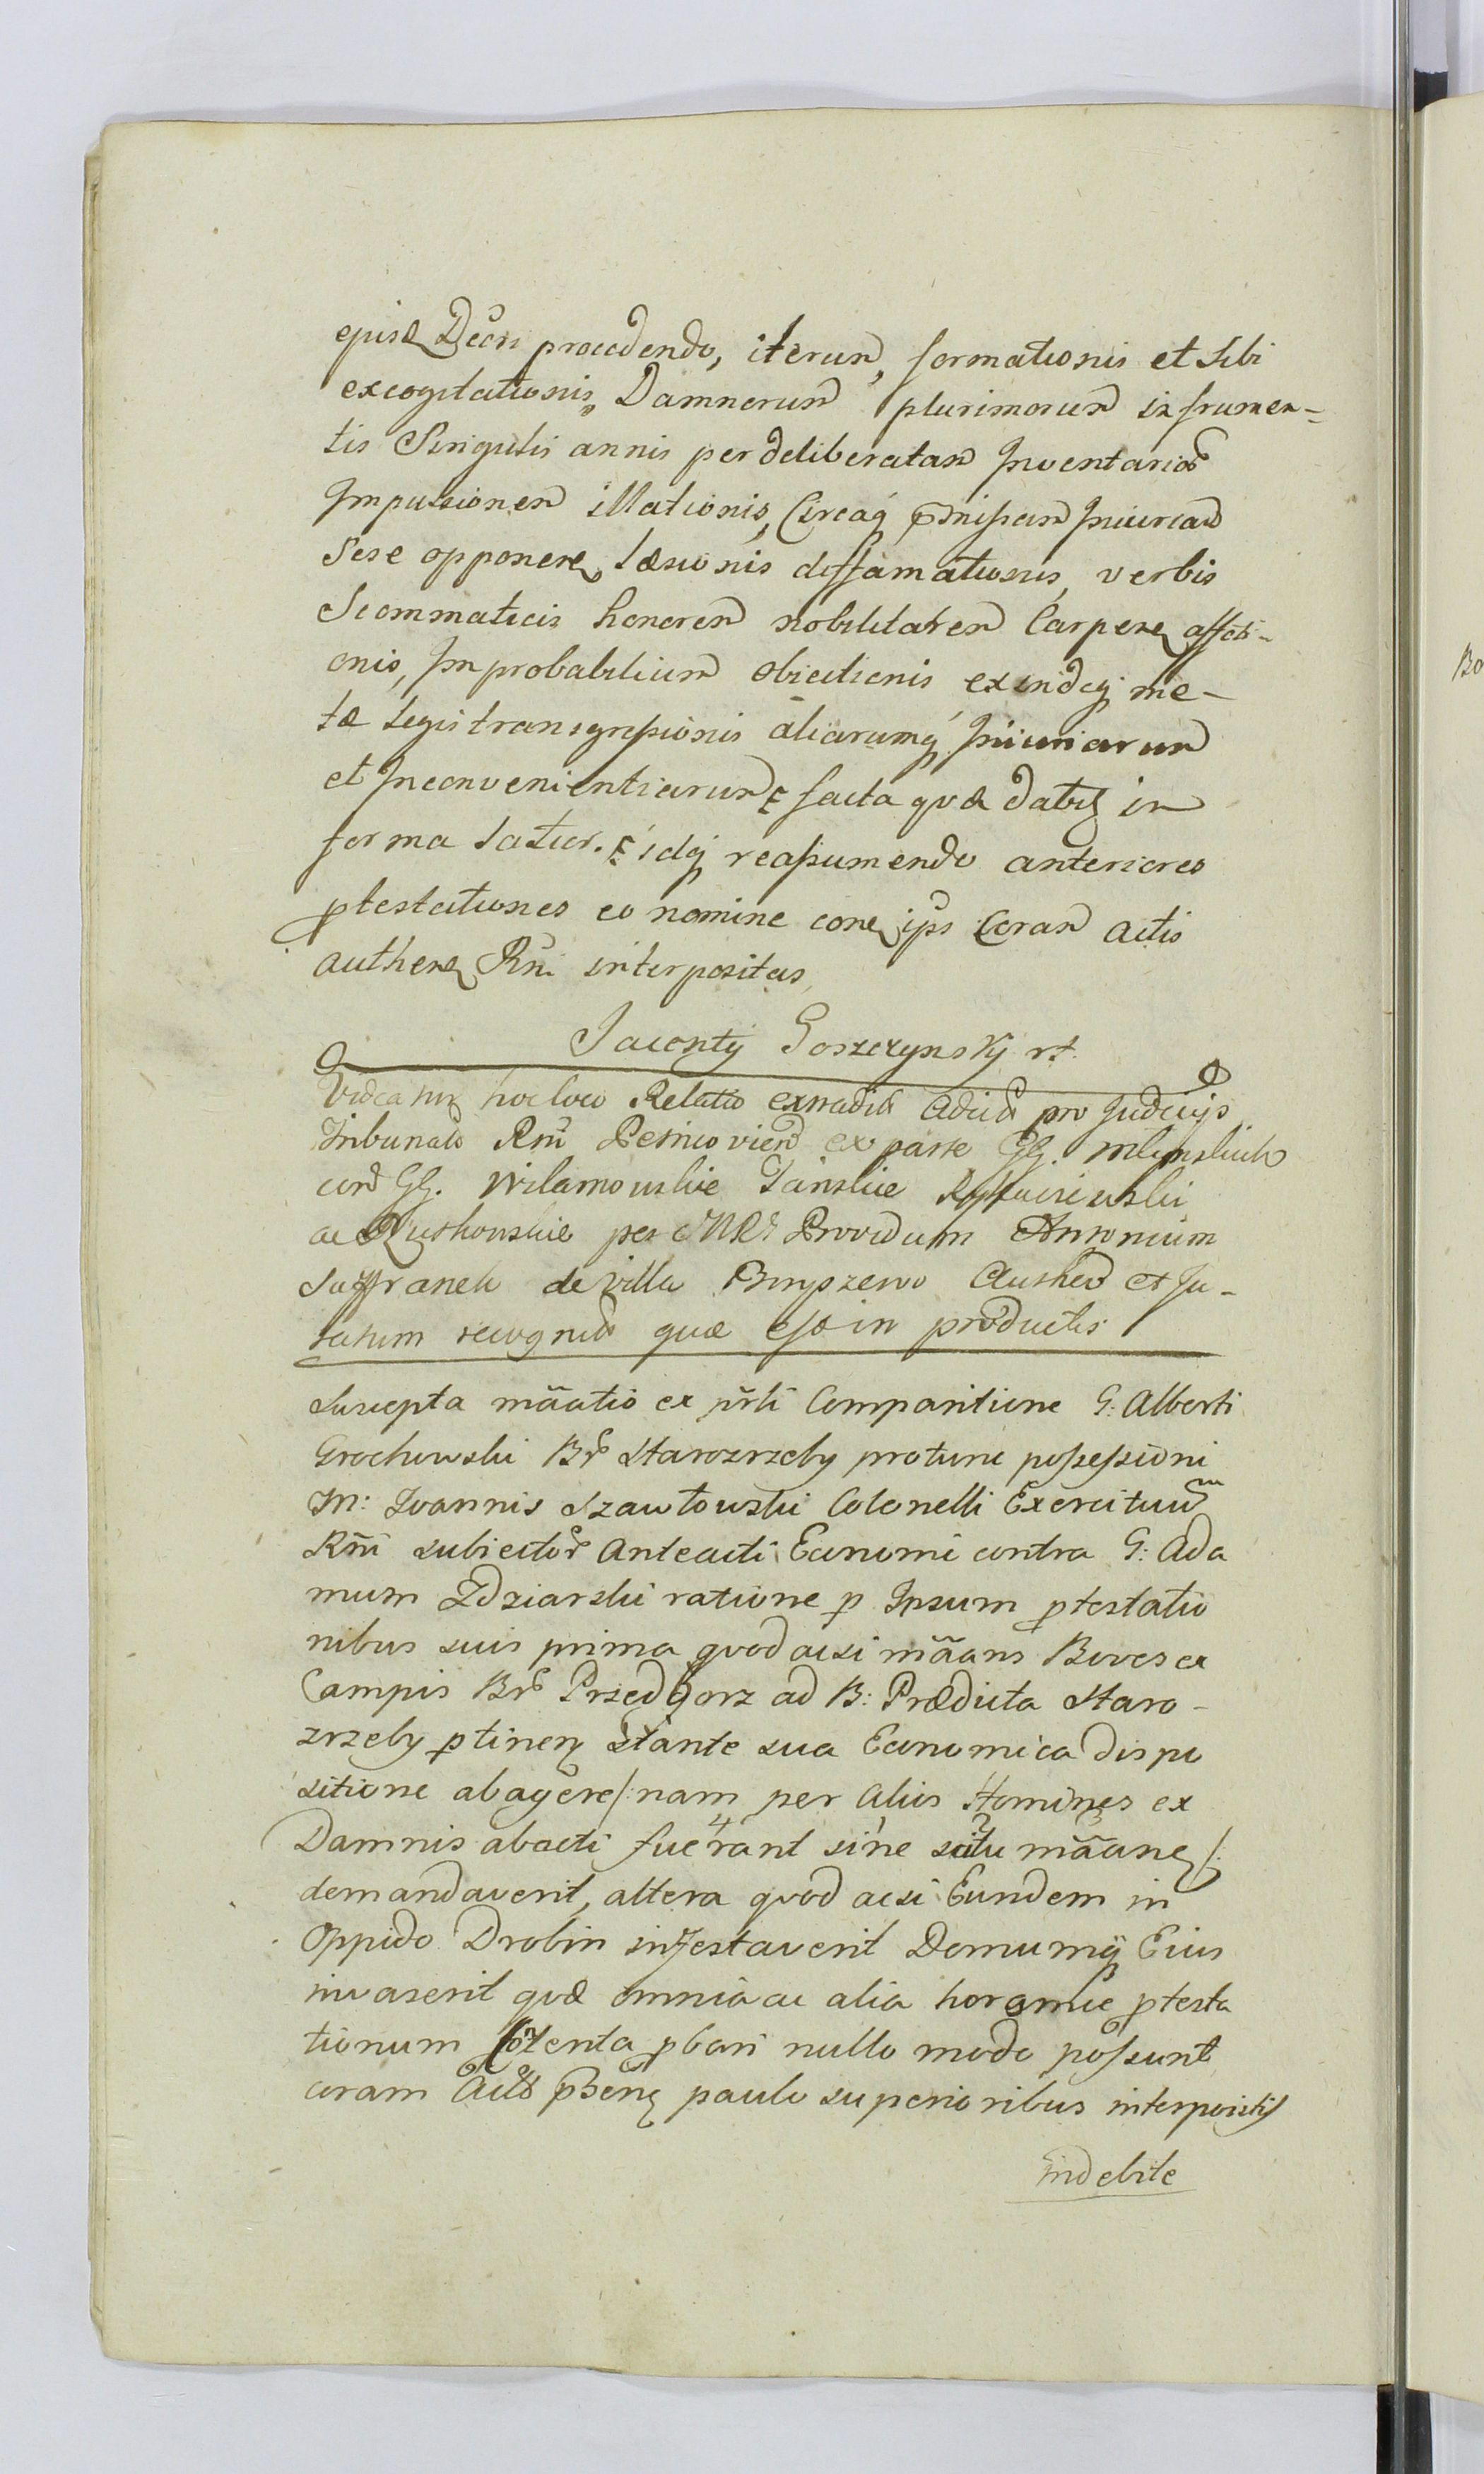 ejusd Decri procedendo, iterum, formationis et sibi
excogitationis, Damnorum plurimorum in frumen=
tis Singulis annis per deliberatam Inventarior
Impulsionem illationis, Circaq omissam Iniuriam
Sese opponere, Læsionis diffamationis, verbis
Scommaticis honorem nobilitatem Carpere affecti-
onis, Improbabilium Obiectionis exindeq me-
tæ Legis transgressionis aliarumq Iniuriarum
et Inconvenientiarum facta qvæ dabit in
forma latior. idq reassumendo anteriores
ptestationes eo nomine conê ips Coram actis
authen Rni interpositas
Iacenty Goszczynsky
Videatur hocloco Relatio extradit Adcit pro Judicijs
Tribunals Rni Petricovien ex parte GG. Mlynskich
con GG. Wilamowskie Tanskie
ac per MRS Providum Antonium
Szaffranek de Villa Authen et Ju-
ratum recognit quæ est in productis
Suscepta mãatio ex pñti Comparitione G: Alberti
Grochowski Br Starozrzeby protunc possessioni
M: Ioannis Szawłowski Colonelli Exercituum
Rñi subiector Anteacti Economi contra G: Ada
mum Zdziarski ratione p Ipsum ptestatio
nibus suis prima qvod acsi mãans Boves ex
Campis Br Przedgorz ad B: Prædicta Staro-
zrzeby ptinen Stante sua Economica dispo
sitione abagere/: nam per Alios Homines ex
Damnis abacti fuerant sine scitu mãane /:
demandaverit, altera qvod acsi Eundem in
Oppido Drobin infestaverit Domumq Eius
invaserit qvæ omnia ac alia horumce ptesta
tionum Cotenta pbari nullo modo possunt
coram Actis pßen paulo superioribus interpositis
indebite